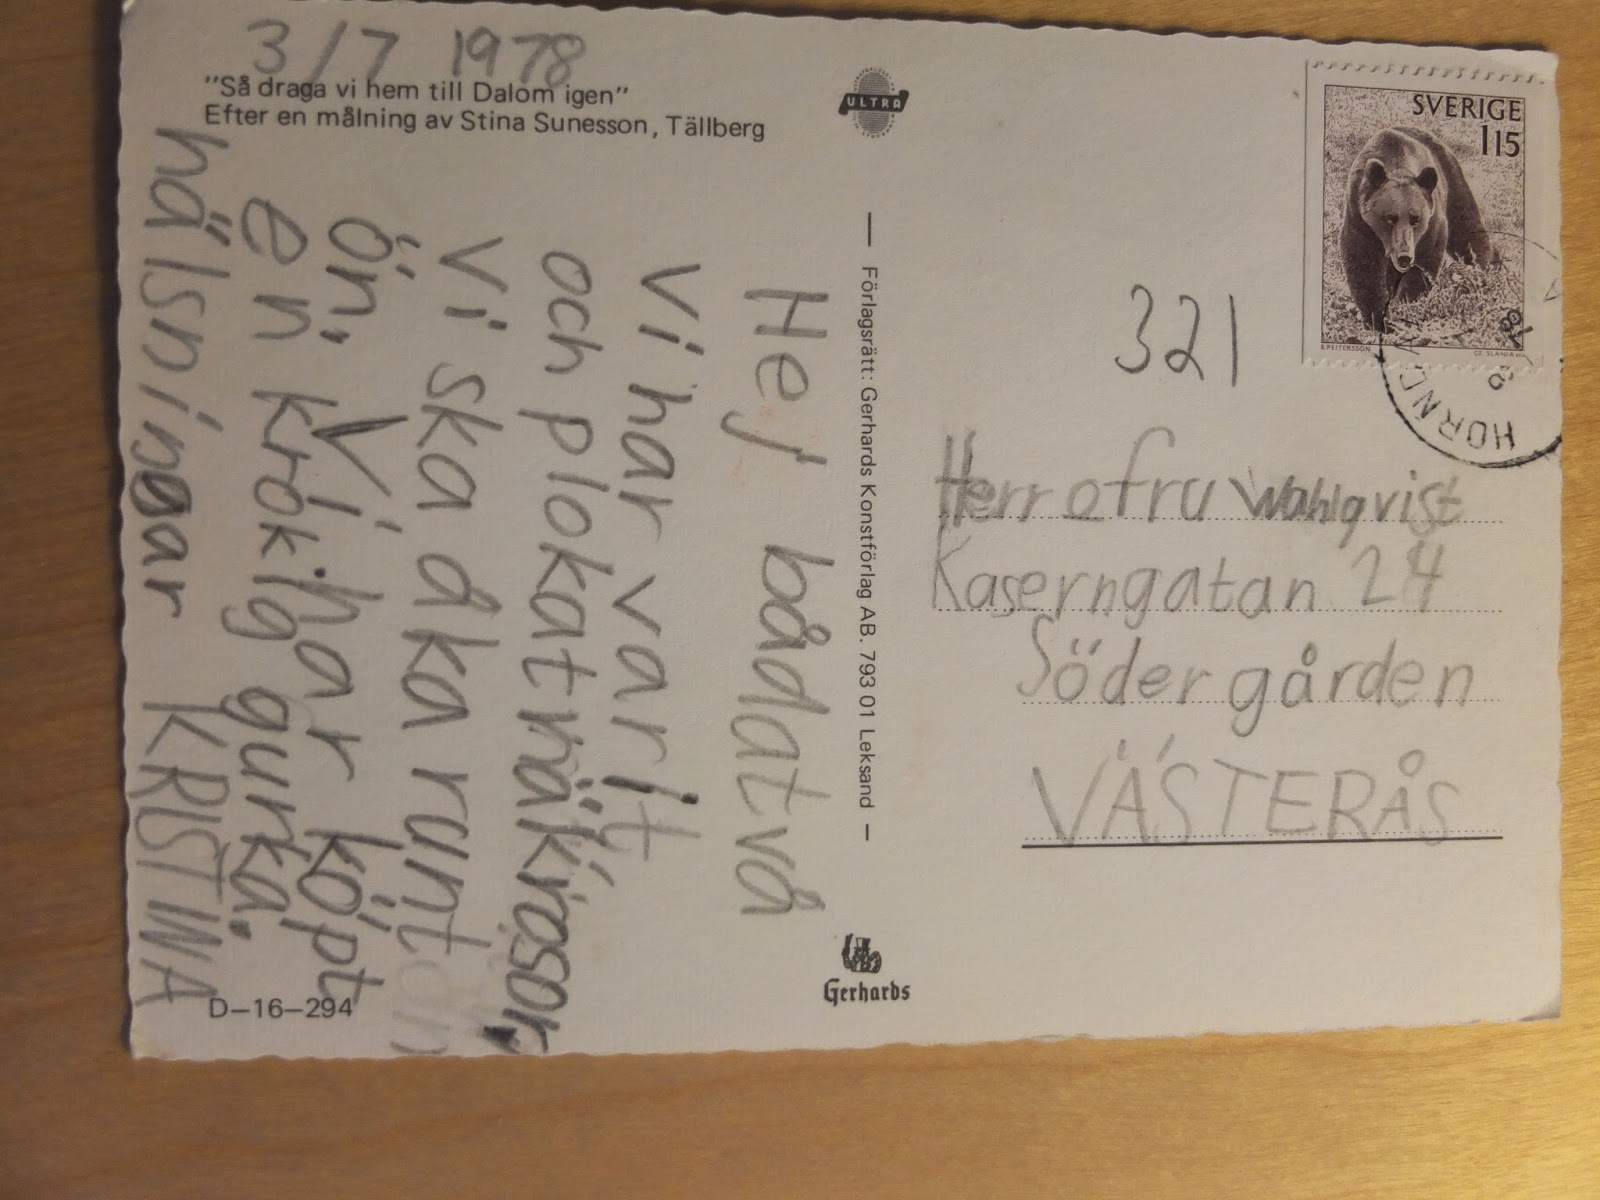 3/7 1978
"Så draga vi hem till Dalom igen"
Efter en målning av Stina Sunesson, Tällberg
Hej bådatvå
Vi har varit
och plokat näkrosor,
vi ska åka runt
ön. Vi har köpt
en krokig gurka.
hälsningar KRISTINA
D-16-294
ULTRA
Förlagsrätt: Gerhards Konstförlag AB. 793 01 Leksand
Gerhards
SVERIGE
115
B. PETTERSSON
CZ. SLANIA
78
321
Herr o fru Wahlqvist
Kaserngatan 24
Södergården
VÄSTERÅS